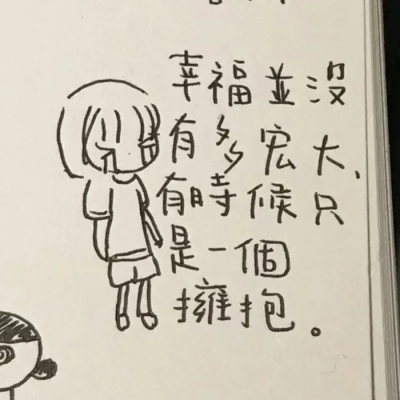 幸福並沒
有多宏大，
有時候只
是一個
擁抱。